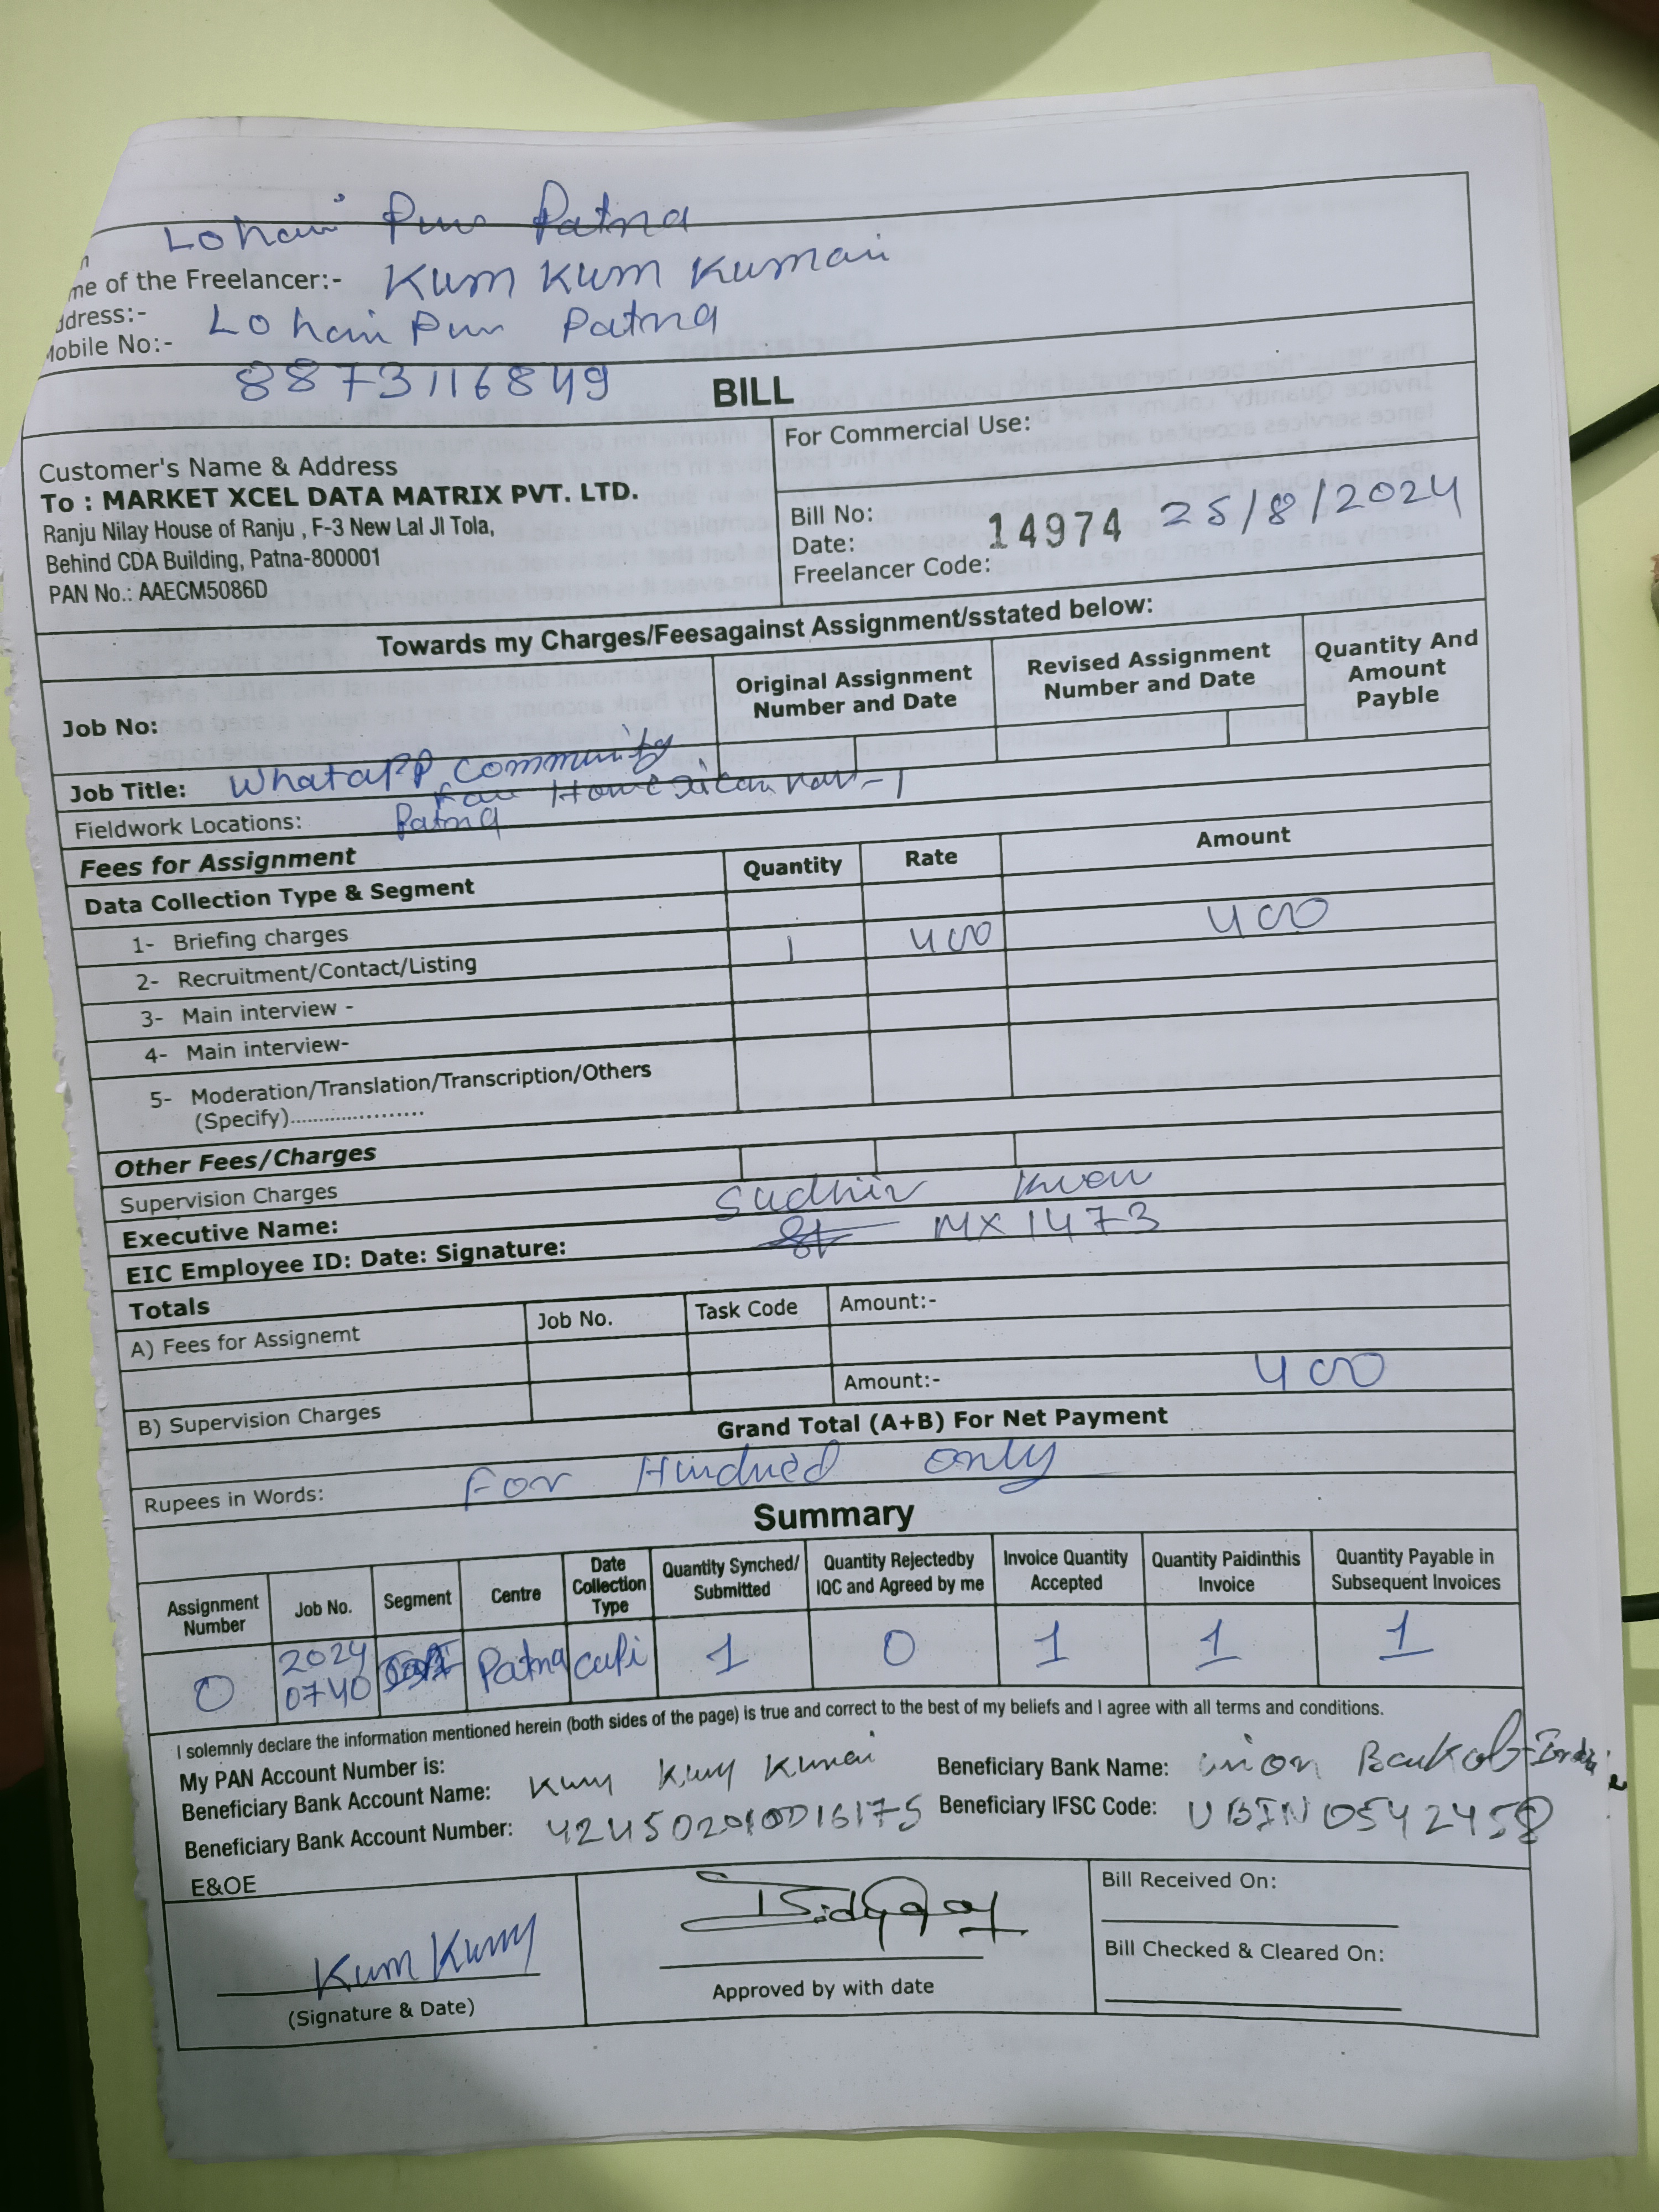 Lohani Pur Patna
me of the Freelancer:- Kum Kum Kumari
ddress:- Lohani Pur Patna
Mobile No:- 8873116849
BILL
Customer's Name & Address
To : MARKET XCEL DATA MATRIX PVT. LTD.
Ranju Nilay House of Ranju , F-3 New Lal JI Tola,
Behind CDA Building, Patna-800001
PAN No.: AAECM5086D
For Commercial Use:
Bill No: 14974
Date: 25/8/2024
Freelancer Code:
Towards my Charges/Feesagainst Assignment/sstated below:
Job No:
Original Assignment Number and Date
Revised Assignment Number and Date
Quantity And Amount Payble
Job Title: Whatapp Community
Fieldwork Locations: Patna
Fees for Assignment
Data Collection Type & Segment Quantity Rate Amount
1- Briefing charges
2- Recruitment/Contact/Listing 1 400 400
3- Main interview -
4- Main interview-
5- Moderation/Translation/Transcription/Others
(Specify)......................
Other Fees/Charges
Supervision Charges
Executive Name: Sudhir
EIC Employee ID: Date: Signature: MX1473
Totals Job No. Task Code Amount:-
A) Fees for Assignemt
B) Supervision Charges Amount:- 400
Grand Total (A+B) For Net Payment
Rupees in Words: For Hundred only
Summary
Assignment Number Job No. Segment Centre Date Collection Type Quantity Synched/ Submitted Quantity Rejectedby IQC and Agreed by me Invoice Quantity Accepted Quantity Paidinthis Invoice Quantity Payable in Subsequent Invoices
0 2024 0740 Patna capi 1 0 1 1 1
I solemnly declare the information mentioned herein (both sides of the page) is true and correct to the best of my beliefs and I agree with all terms and conditions.
My PAN Account Number is:
Beneficiary Bank Account Name: Kum Kum Kumari
Beneficiary Bank Name: Union Bank of India
Beneficiary Bank Account Number: 424502010016175
Beneficiary IFSC Code: UBIN0542458
E&OE
Kum Kum
(Signature & Date)
Approved by with date
Bill Received On:
Bill Checked & Cleared On: